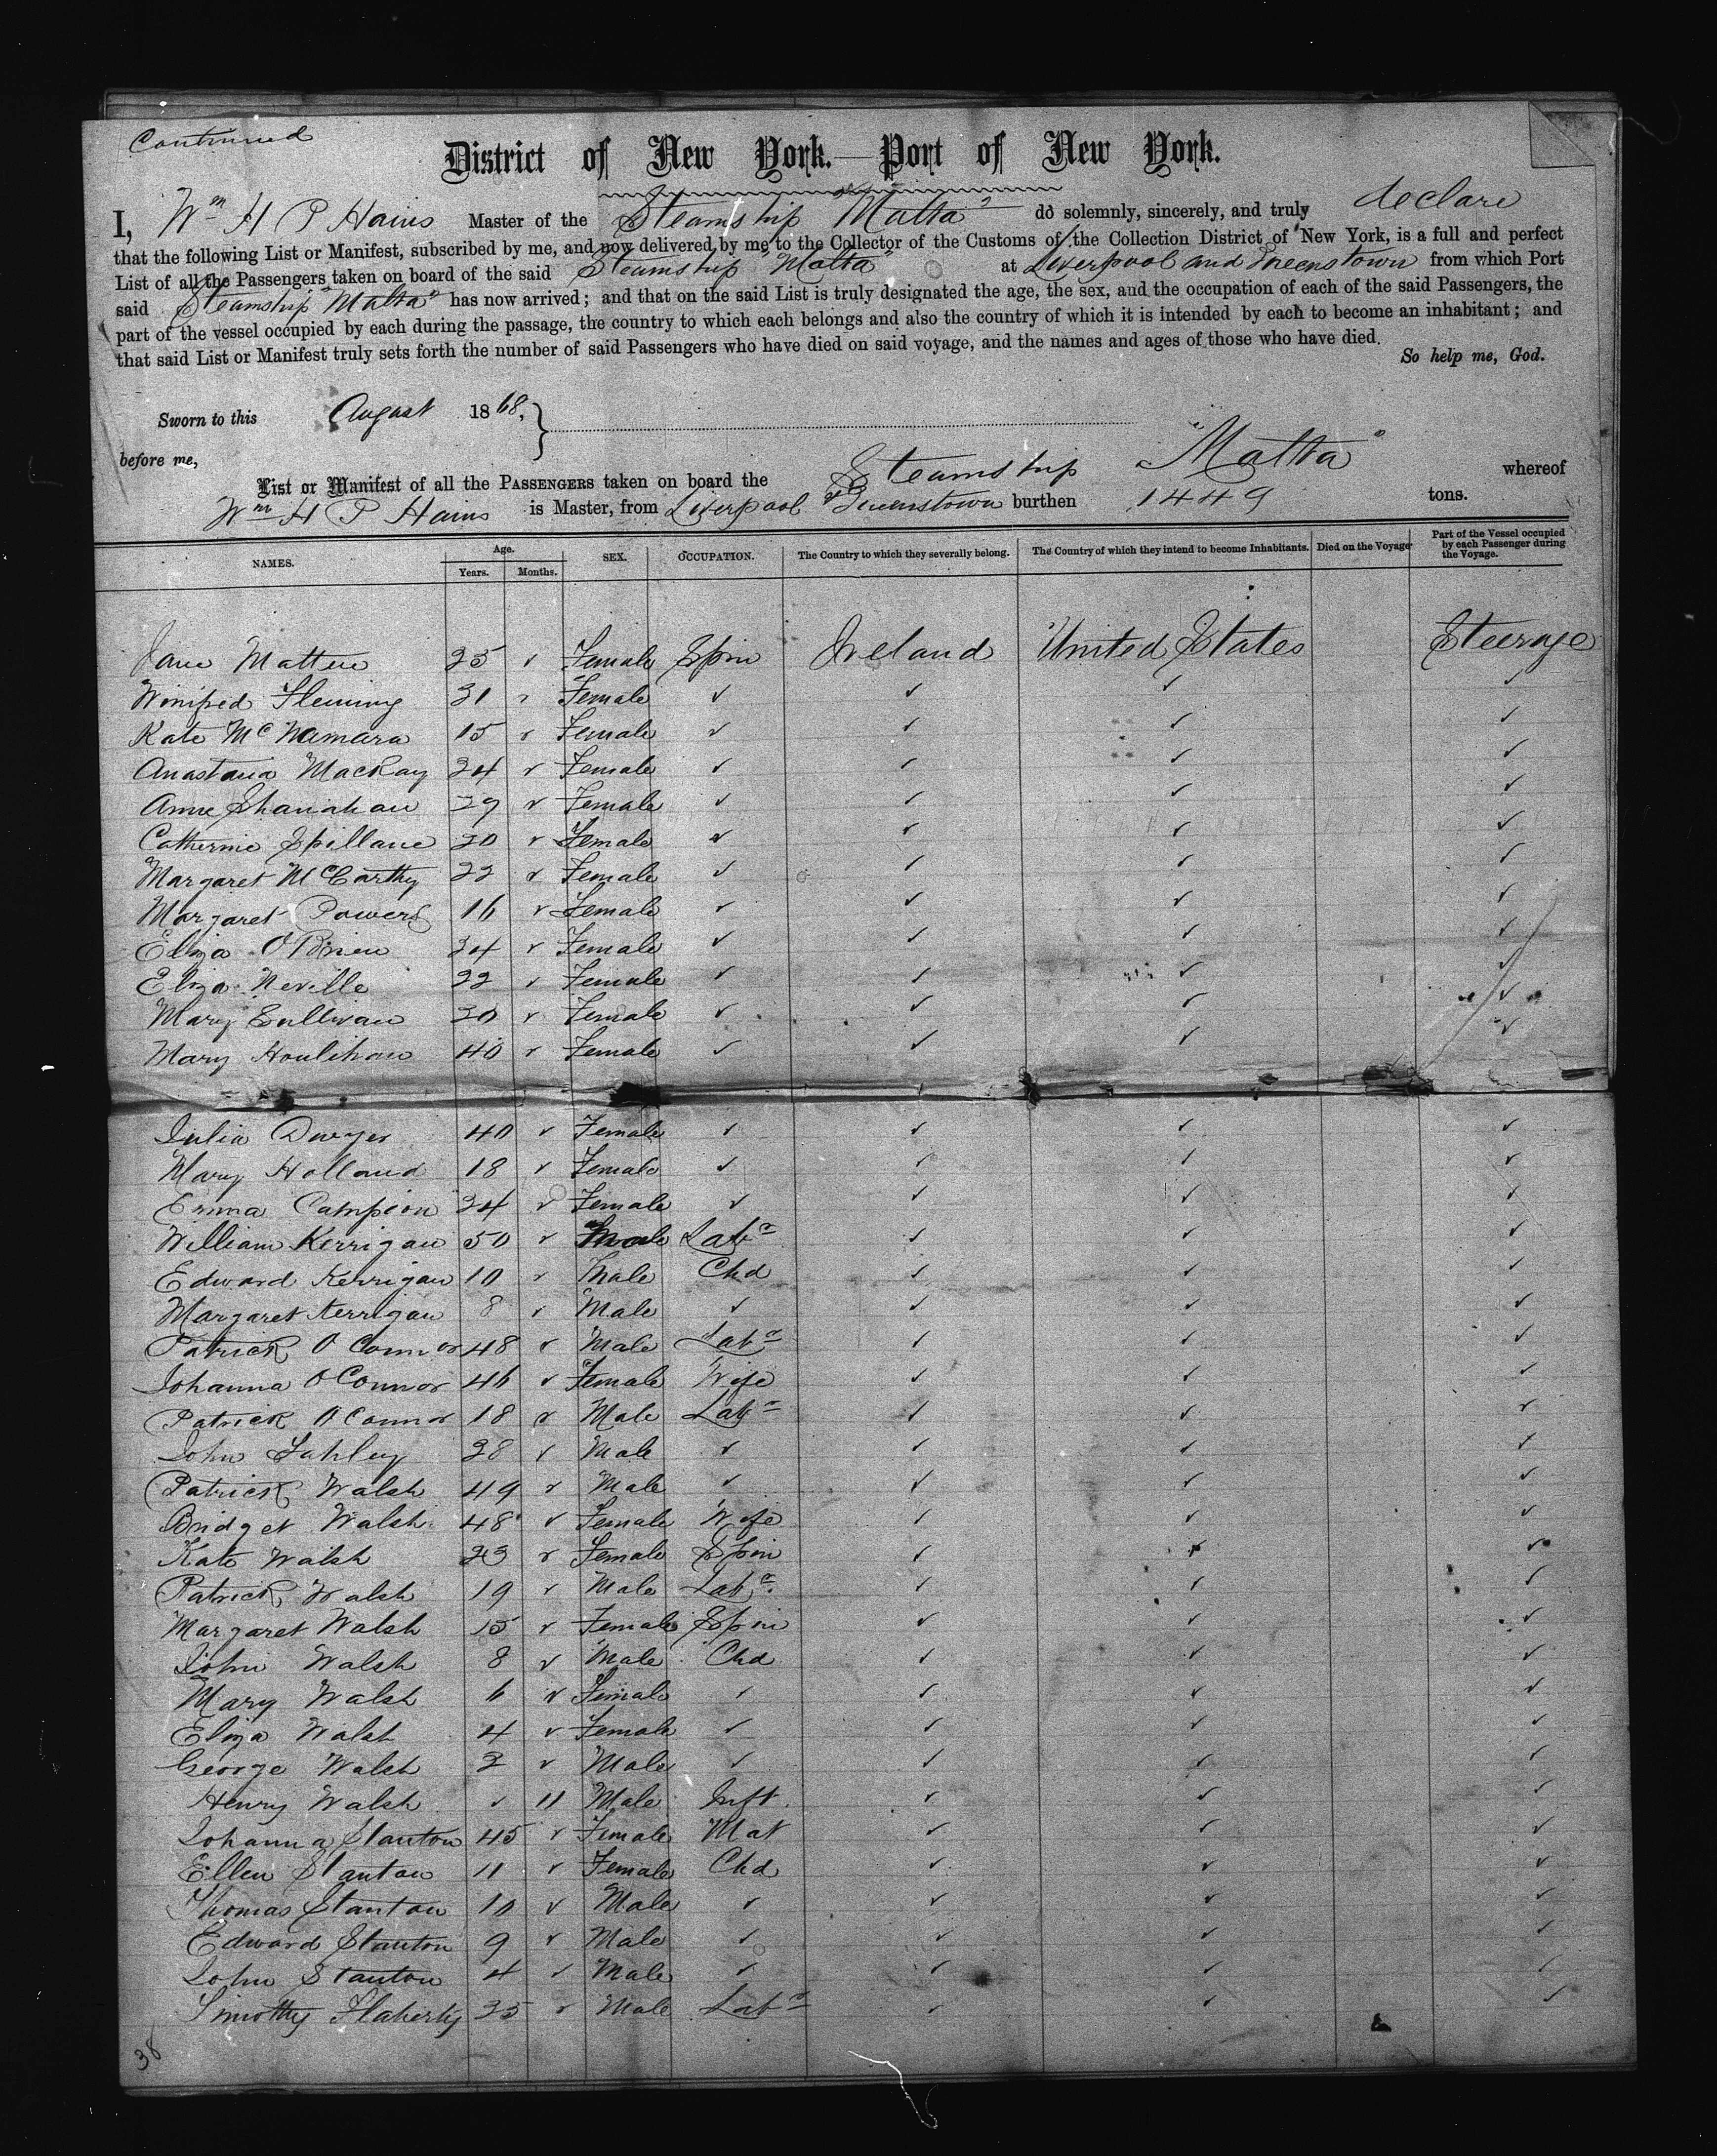 Continued
District of New York.—Port of New York.
I, Wm H P Hains Master of the Steamship "Malta" do solemnly, sincerely, and truly declare
that the following List or Manifest, subscribed by me, and now delivered by me to the Collector of the Customs of the Collection District of New York, is a full and perfect
List of all the Passengers taken on board of the said Steamship "Malta" at Liverpool and Queenstown from which Port
said Steamship "Malta" has now arrived; and that on the said List is truly designated the age, the sex, and the occupation of each of the said Passengers, the
part of the vessel occupied by each during the passage, the country to which each belongs and also the country of which it is intended by each to become an inhabitant; and
that said List or Manifest truly sets forth the number of said Passengers who have died on said voyage, and the names and ages of those who have died.
So help me, God.
Sworn to this August 1868,
before me,
List or Manifest of all the PASSENGERS taken on board the Steamship "Malta" whereof
Wm H P Hains is Master, from Liverpool & Queenstown burthen 1449 tons.
NAMES. Age. Years. Months. SEX. OCCUPATION. The Country to which they severally belong. The Country of which they intend to become Inhabitants. Died on the Voyage Part of the Vessel occupied by each Passenger during the Voyage.
Jane Matten 25 ✓ Female Spin Ireland United States Steerage
Winifred Fleming 31 ✓ Female ✓ ✓ ✓ ✓
Kate McNamara 15 ✓ Female ✓ ✓ ✓ ✓
Anastasia MacKay 24 ✓ Female ✓ ✓ ✓ ✓
Anne Shanahan 29 ✓ Female ✓ ✓ ✓ ✓
Catherine Spillane 20 ✓ Female ✓ ✓ ✓ ✓
Margaret McCarthy 22 ✓ Female ✓ ✓ ✓ ✓
Margaret Powers 16 ✓ Female ✓ ✓ ✓ ✓
Eliza O'Brien 34 ✓ Female ✓ ✓ ✓ ✓
Eliza Neville 22 ✓ Female ✓ ✓ ✓ ✓
Mary Sullivan 30 ✓ Female ✓ ✓ ✓ ✓
Mary Houlihan 40 ✓ Female ✓ ✓ ✓ ✓
Julia Dwyer 40 ✓ Female ✓ ✓ ✓ ✓
Mary Holland 18 ✓ Female ✓ ✓ ✓ ✓
Emma Campion 24 ✓ Female ✓ ✓ ✓ ✓
William Kerrigan 50 ✓ Male Labr ✓ ✓ ✓
Edward Kerrigan 10 ✓ Male Chd ✓ ✓ ✓
Margaret Kerrigan 8 ✓ Male ✓ ✓ ✓ ✓
Patrick O Connor 48 ✓ Male Labr ✓ ✓ ✓
Johanna O Connor 46 ✓ Female Wife ✓ ✓ ✓
Patrick O Connor 18 ✓ Male Labr ✓ ✓ ✓
John Fahley 28 ✓ Male ✓ ✓ ✓ ✓
Patrick Walsh 49 ✓ Male ✓ ✓ ✓ ✓
Bridget Walsh 48 ✓ Female Wife ✓ ✓ ✓
Kate Walsh 23 ✓ Female Spin ✓ ✓ ✓
Patrick Walsh 19 ✓ Male Labr ✓ ✓ ✓
Margaret Walsh 15 ✓ Female Spin ✓ ✓ ✓
John Walsh 8 ✓ Male Chd ✓ ✓ ✓
Mary Walsh 6 ✓ Female ✓ ✓ ✓ ✓
Eliza Walsh 4 ✓ Female ✓ ✓ ✓ ✓
George Walsh 2 ✓ Male ✓ ✓ ✓ ✓
Henry Walsh ✓ 11 Male Inft ✓ ✓ ✓
Johanna Stanton 45 ✓ Female Mat ✓ ✓ ✓
Ellen Stanton 11 ✓ Female Chd ✓ ✓ ✓
Thomas Stanton 10 ✓ Male ✓ ✓ ✓ ✓
Edward Stanton 9 ✓ Male ✓ ✓ ✓ ✓
John Stanton 4 ✓ Male ✓ ✓ ✓ ✓
Timothy Flaherty 35 ✓ Male Labr ✓ ✓ ✓
38